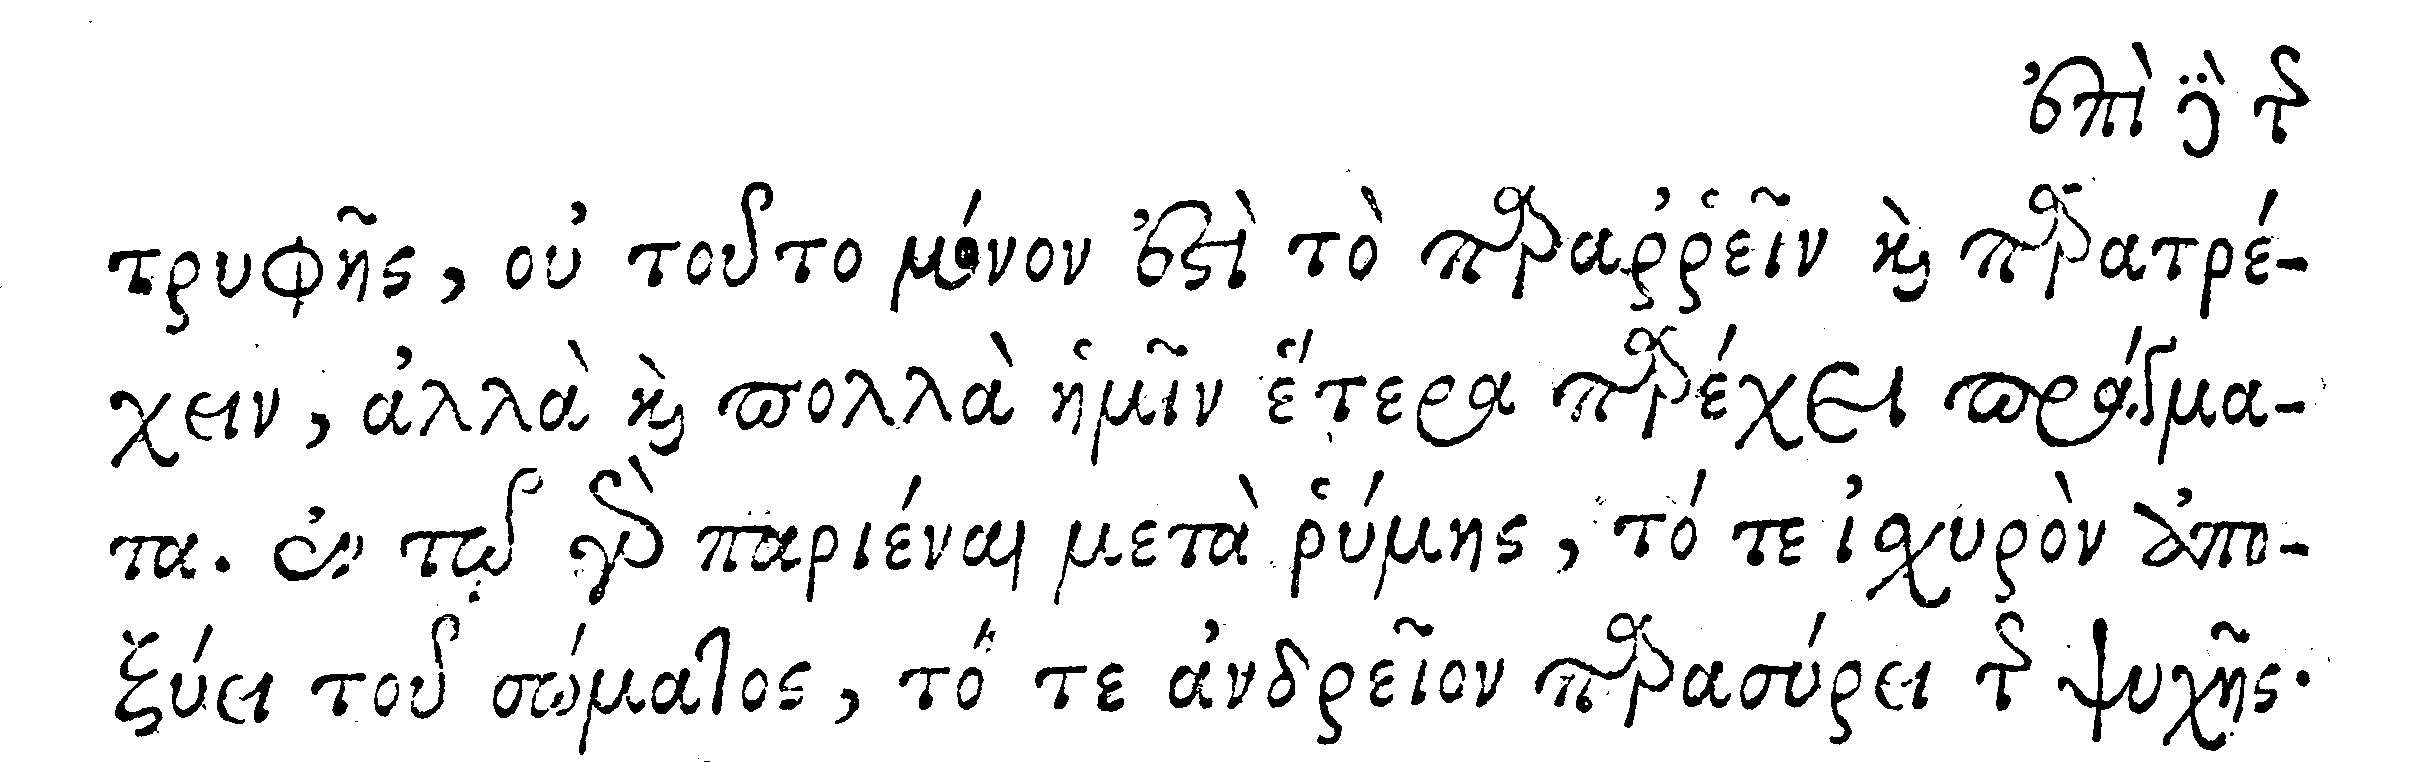 ἐπὶ δὲ τῆς
τρυφῆς, οὐ τοῦτο μόνον ἐστὶ τὸ παραῤῥεῖν καὶ παρατρέ-
χειν, ἀλλὰ καὶ πολλὰ ἡμῖν ἕτερα παρέχει πράγμα-
τα. ἐν τῷ γὰρ παριέναι μετὰ ῥύμης, τό τε ἰσχυρὸν ἀπο-
ξύει τοῦ σώματος, τό τε ἀνδρεῖον παρασύρει τῆς ψυχῆς.